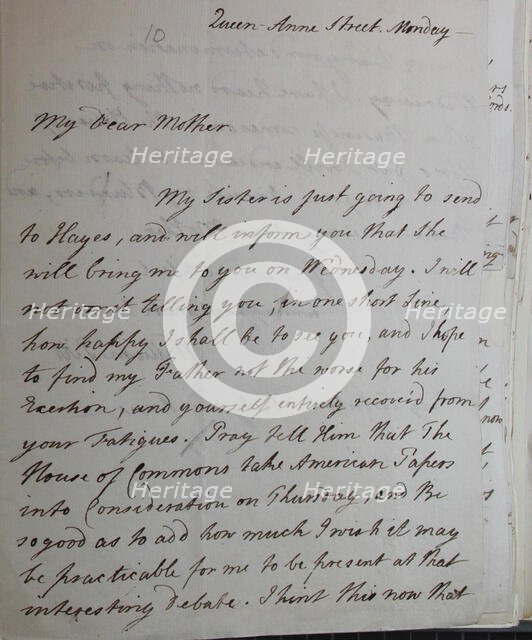 10
Queen-Anne Street. Monday —
My Dear Mother
My Sister is just going to send
to Hayes, and will inform you that She
will bring me to you on Wednesday. I will
not omit telling you, in one short Line
how happy I shall be to see you, and I hope
to find my Father not the worse for his
Exertion, and yourself entirely recover'd from
your Fatigues. Pray tell Him that The
House of Commons take American Papers
into Consideration on Thursday, and Be
so good as to add how much I wish it may
be practicable for me to be present at that
interesting Debate. I hint this now that
Heritage Heritage
Heritage Heritage Heritage
Heritage Heritage
Heritage Heritage Heritage
Heritage Heritage
now